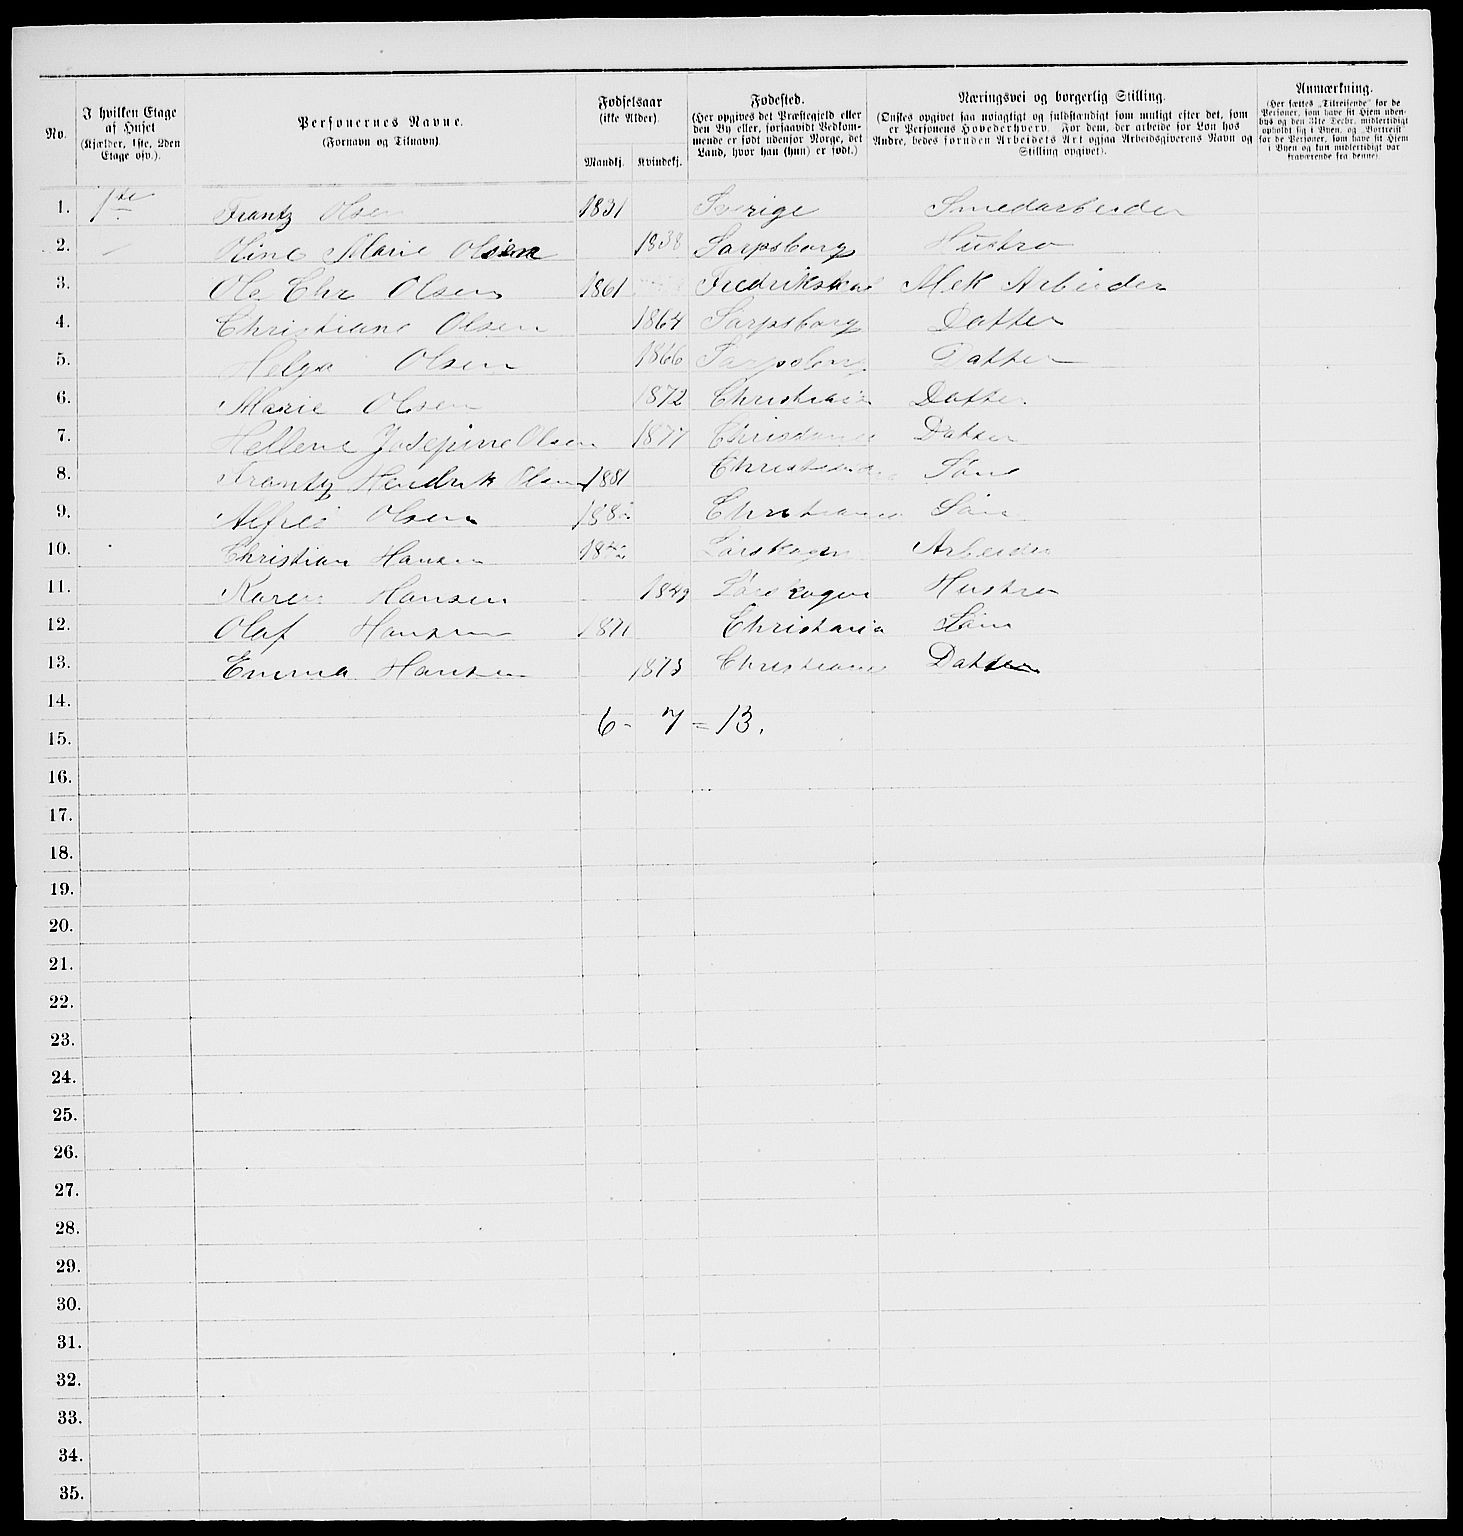 No.
I hvilken Etage af Huset (Kjælder, 1ste, 2den Etage osv.).
Personernes Navne.
(Fornavn og Tilnavn).
Fødselsaar
(ikke Alder).
Mandkj. Kvindekj.
Fødested.
(Her opgives det Præstegjeld eller
den By eller, forsaavidt Vedkom-
mende er født udenfor Norge, det
Land, hvor han (hun) er født.)
Næringsvei og borgerlig Stilling.
(Ønskes opgivet saa nøiagtigt og fuldstændigt som muligt efter det, som
er Personens Hovederhverv. For dem, der arbeide for Løn hos
Andre, bedes foruden Arbeidets Art ogsaa Arbeidsgiverens Navn og
Stilling opgivet).
Anmærkning.
(Her sættes „Tilreisende" for de
Personer, som have sit Hjem uden-
bys og den 31te Decbr. midlertidigt
opholdt sig i Byen, og „Bortreist"
for de Personer, som have sit Hjem
i Byen og kun midlertidigt var
fraværende fra denne).
1. 1ste Frantz Olsen 1831 Sverige Smedarbeider
2. Oline Marie Olsen 1838 Sarpsborg Hustro
3. Ole Chr Olsen 1861 Fredrikstad Mek Arbeider
4. Christiane Olsen 1864 Sarpsborg Datter
5. Helga Olsen 1866 Sarpsborg Datter
6. Marie Olsen 1872 Christiania Datter
7. Hellene Josepine Olsen 1877 Christiania Datter
8. Frantz Hendrik Olsen 1881 Christiania Søn
9. Alfred Olsen Christiania Søn
10. Christian Hansen Arbeider
11. Karen Hansen 1849 Hustro
12. Olaf Hansen 1871 Christania Søn
13. Emma Hansen 1873 Christiania Datter
14.
6 - 7 = 13.
15.
16.
17.
18.
19.
20.
21.
22.
23.
24.
25.
26.
27.
28.
29.
30.
31.
32.
33.
34.
35.